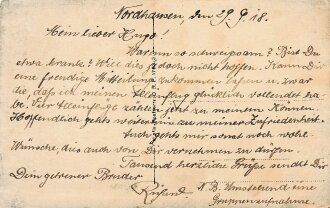 Nordhausen den 29.9.18.
Mein lieber Hugo!
Warum so schweigsam? Bist Du
etwa krank? Will dies jedoch nicht hoffen. Kann Dir
eine freudige Mitteilung zukommen lassen u. zwar
die, daß ich meinen Alleinflug glücklich vollendet ha-
be. Vier Alleinflüge zählen jetzt zu meinem Können.
Hoffendlich gehts weiterhin zu meiner Zufriedenheit.
Auch gehts mir sonst noch wohl.
Wünsche, dies auch von Dir vernehmen zu dürfen.
Tausend herzliche Grüße sendet Dir
Dein getreuer Bruder
N.B. Umstehend eine
Gruppenaufnahme.